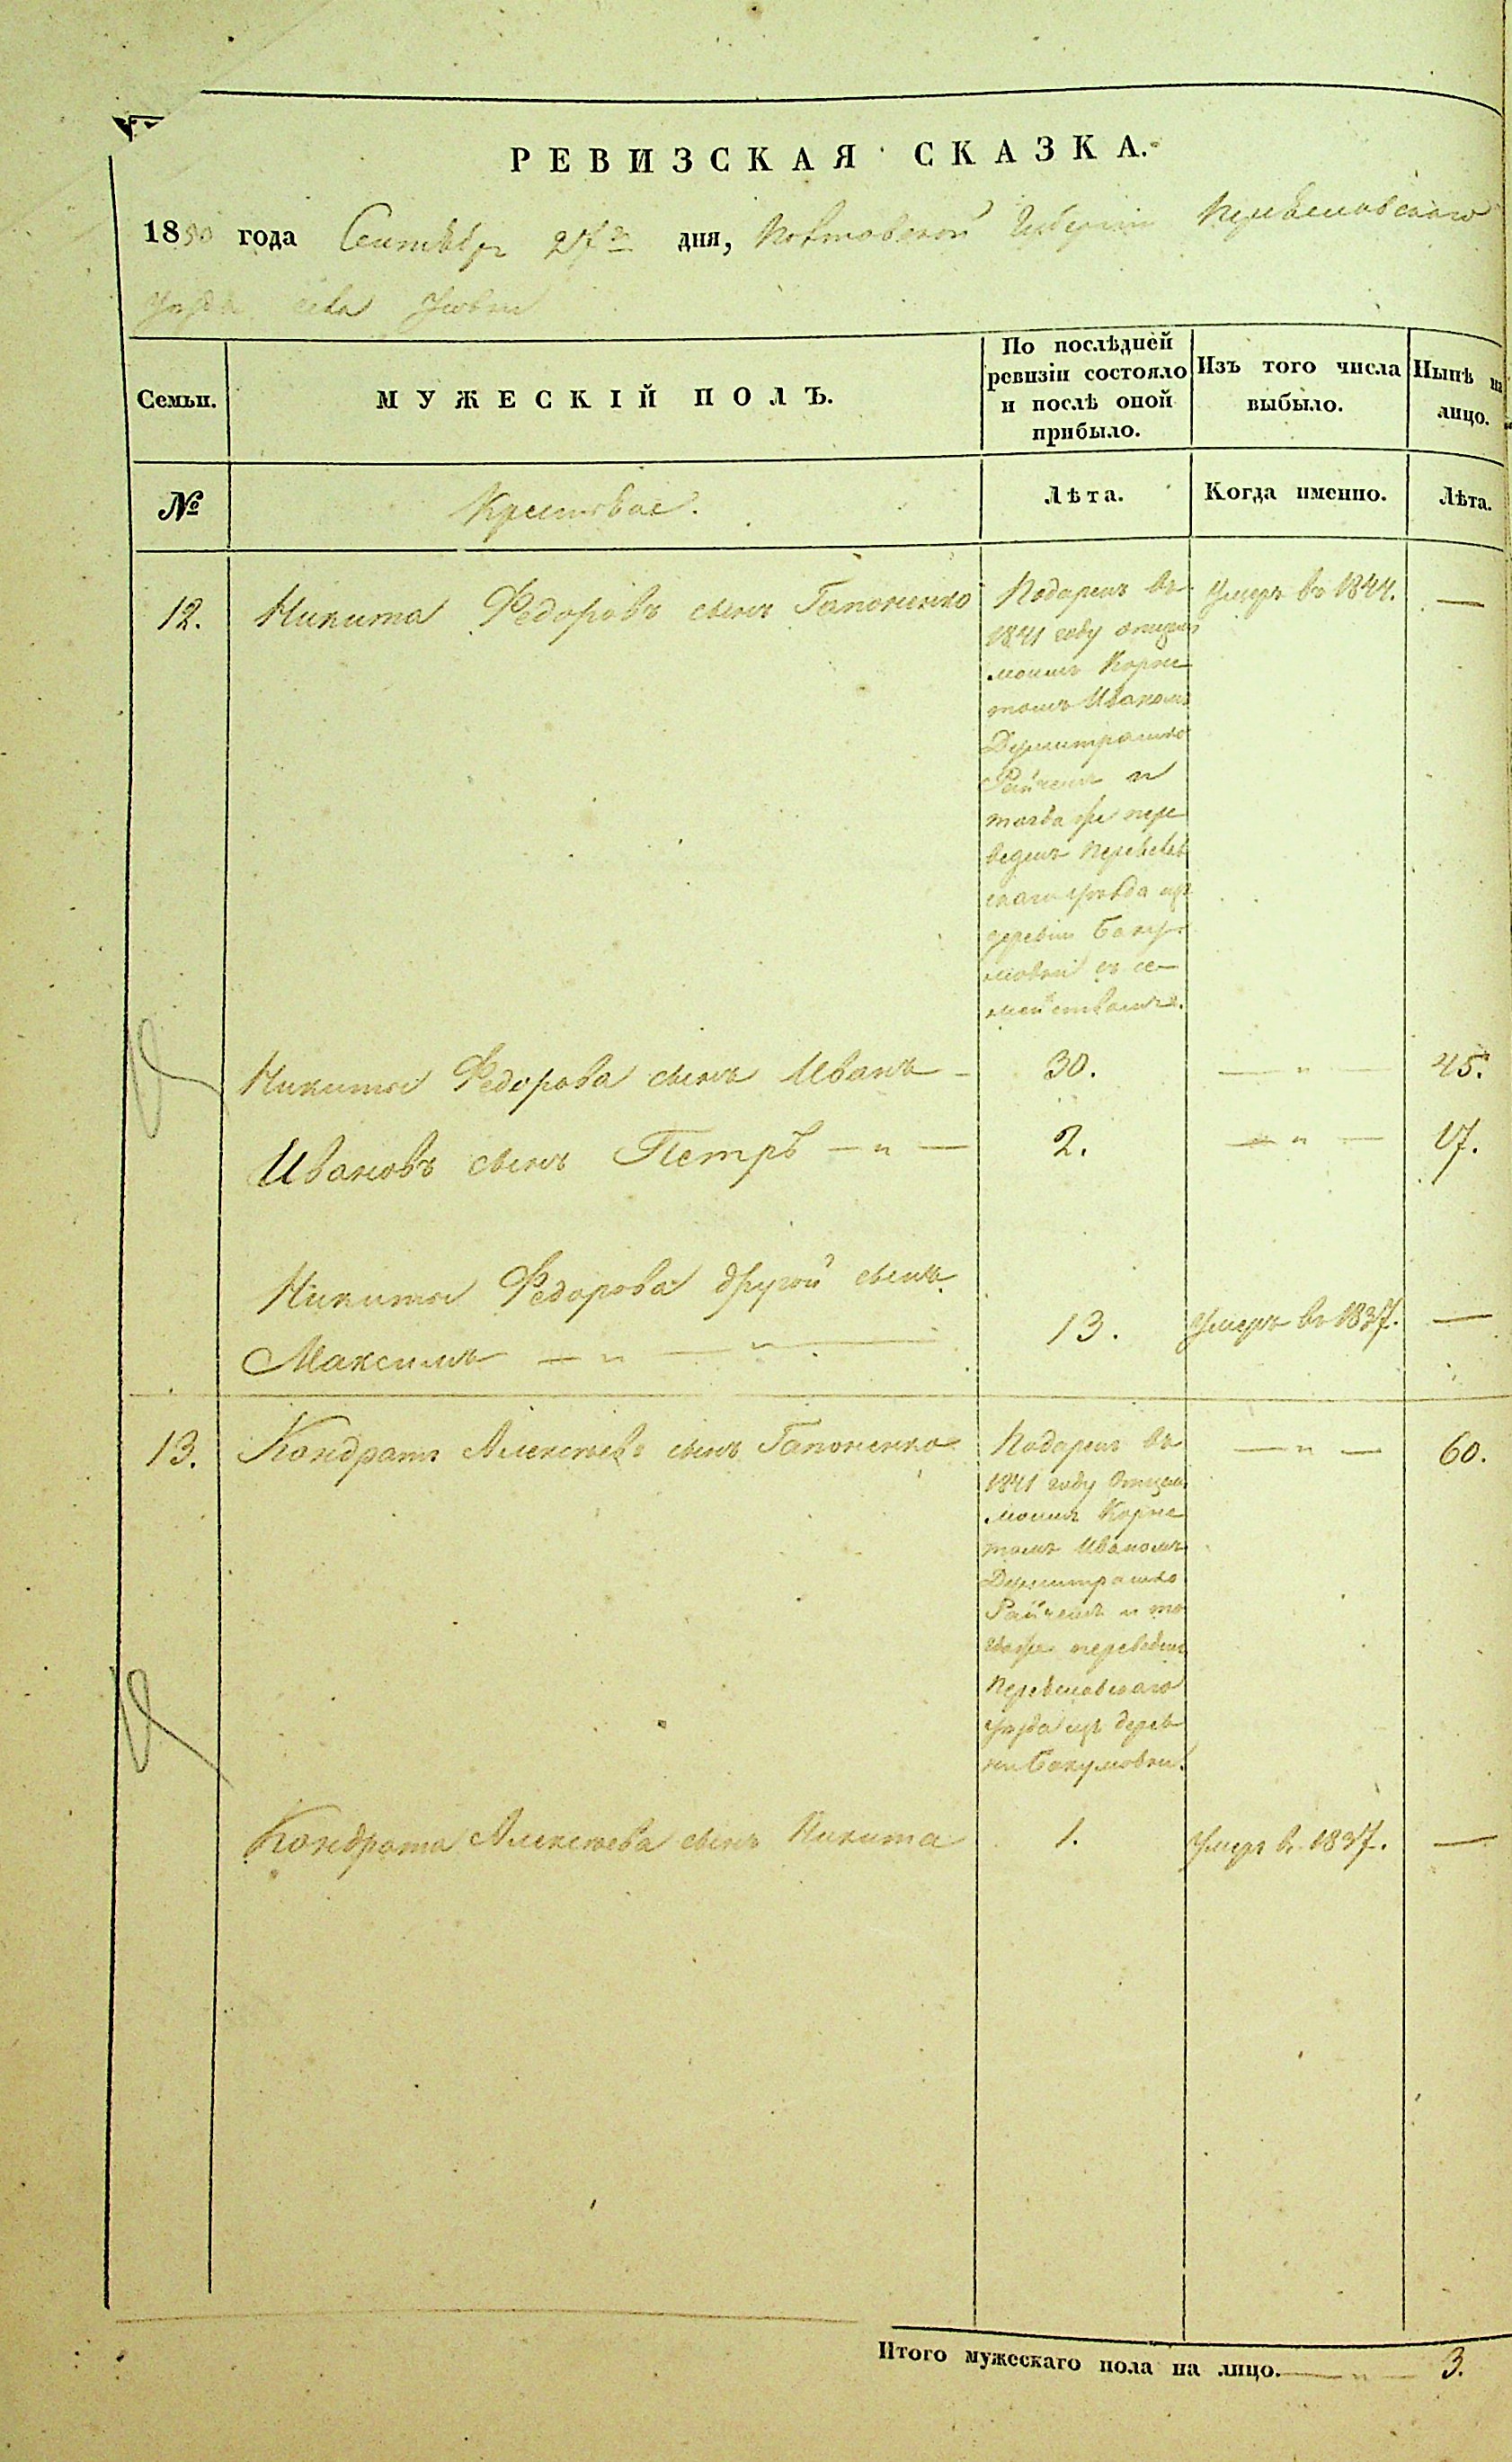 РЕВИЗСКАЯ СКАЗКА.
1850 года Сентября 27го дня, Полтавской Губернии Переяславскаго
уезда села
Семьи. МУЖЕСКІЙ ПОЛЪ. По послѣдней ревизіи состояло и послѣ оной прибыло. Изъ того числа выбыло. Нынѣ на лицо.
№ Лѣта. Когда именно. Лѣта.
12. Никита Федоровъ сынъ Гапоненко Подаренъ въ Умеръ въ 1844. —
1841 году отцемъ
моимъ Корне
томъ Иваномъ
Дмитрашко
Райчемъ и
тогда же пере
веденъ Переяслав
скаго уѣзда изъ
деревни Баку
мовки съ се
мействомъ.
Никиты Федорова сынъ Иванъ — 30. — „ — 45.
Ивановъ сынъ Петръ — „ — 2. — „ — 17.
Никиты Федорова другой сынъ
Максимъ — „ — „ — 13. Умеръ въ 1837. —
13. Кондратъ Алексѣевъ сынъ Гапоненко Подаренъ въ — „ — 60.
1841 году отцемъ
моимъ Корне
томъ Иваномъ
Дмитрашко
Райчемъ и то
гда же переведенъ
Переяславскаго
уѣзда изъ дерев
ни Бакумовки.
Кондрата Алексѣева сынъ Никита 1. Умеръ въ 1837. —
Итого мужескаго пола на лицо. — „ — 3.